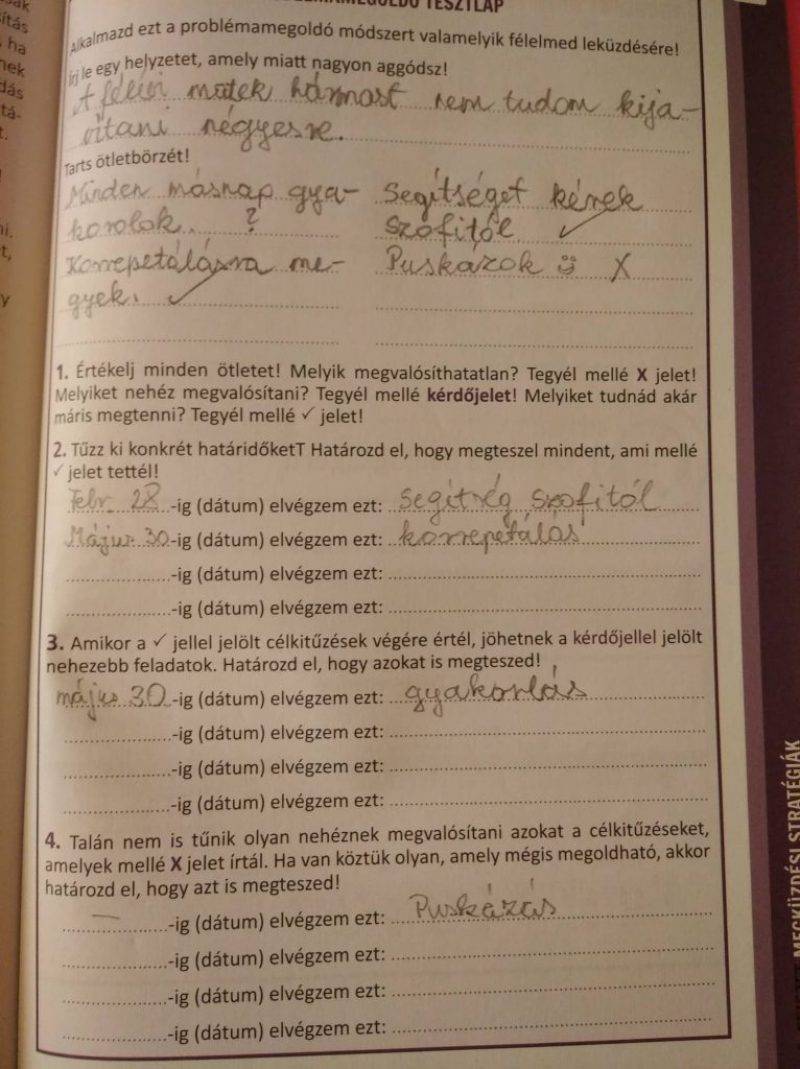 TESZTLAP
Alkalmazd ezt a problémamegoldó módszert valamelyik félelmed leküzdésére!
Írj le egy helyzetet, amely miatt nagyon aggódsz!
A félévi matek hármast nem tudom kija-
vítani négyesre.
Tarts ötletbörzét!
Minden másnap gya-
korolok. ?
Korrepetálásra me-
gyek. ✓
Segítséget kérek
Szofitól ✓
Puskázok ☺ X
1. Értékelj minden ötletet! Melyik megvalósíthatatlan? Tegyél mellé X jelet!
Melyiket nehéz megvalósítani? Tegyél mellé kérdőjelet! Melyiket tudnád akár
máris megtenni? Tegyél mellé ✓ jelet!
2. Tűzz ki konkrét határidőketT Határozd el, hogy megteszel mindent, ami mellé
✓ jelet tettél!
Febr. 28 -ig (dátum) elvégzem ezt: Segítség Szofitól
Május 30-ig (dátum) elvégzem ezt: korrepetálás
-ig (dátum) elvégzem ezt:
-ig (dátum) elvégzem ezt:
3. Amikor a ✓ jellel jelölt célkitűzések végére értél, jöhetnek a kérdőjellel jelölt
nehezebb feladatok. Határozd el, hogy azokat is megteszed!
május 30 -ig (dátum) elvégzem ezt: gyakorlás
-ig (dátum) elvégzem ezt:
-ig (dátum) elvégzem ezt:
-ig (dátum) elvégzem ezt:
4. Talán nem is tűnik olyan nehéznek megvalósítani azokat a célkitűzéseket,
amelyek mellé X jelet írtál. Ha van köztük olyan, amely mégis megoldható, akkor
határozd el, hogy azt is megteszed!
— -ig (dátum) elvégzem ezt: Puskázás
-ig (dátum) elvégzem ezt:
-ig (dátum) elvégzem ezt:
-ig (dátum) elvégzem ezt:
MEGKÜZDÉSI STRATÉGIÁK